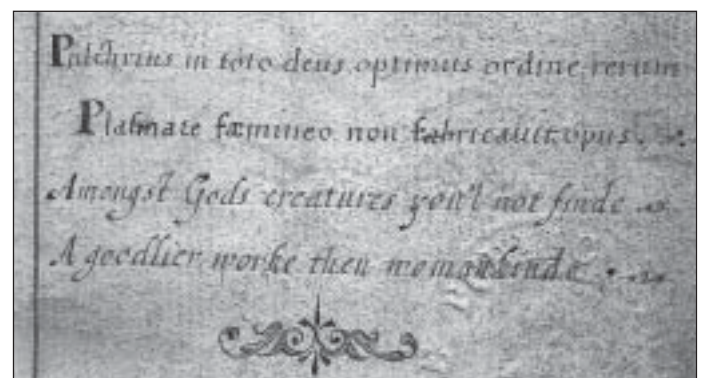 Pulchrius in toto deus optimus ordine rerum
Plasmate fæmineo non fabricauit opus.
Amongst Gods creatures you'l not finde
A goodlier worke then womankinde.